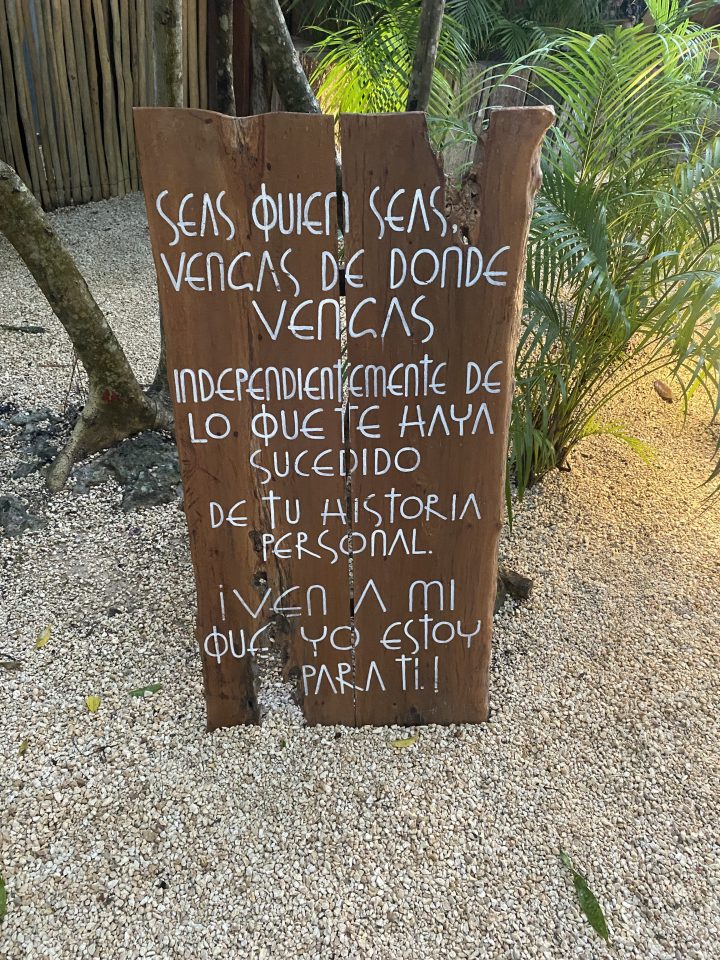 SEAS QUIEN SEAS,
VENGAS DE DONDE
VENGAS
INDEPENDIENTEMENTE DE
LO QUE TE HAYA
SUCEDIDO
DE TU HISTORIA
PERSONAL.
¡VEN A MI
QUE YO ESTOY
PARA TI.!